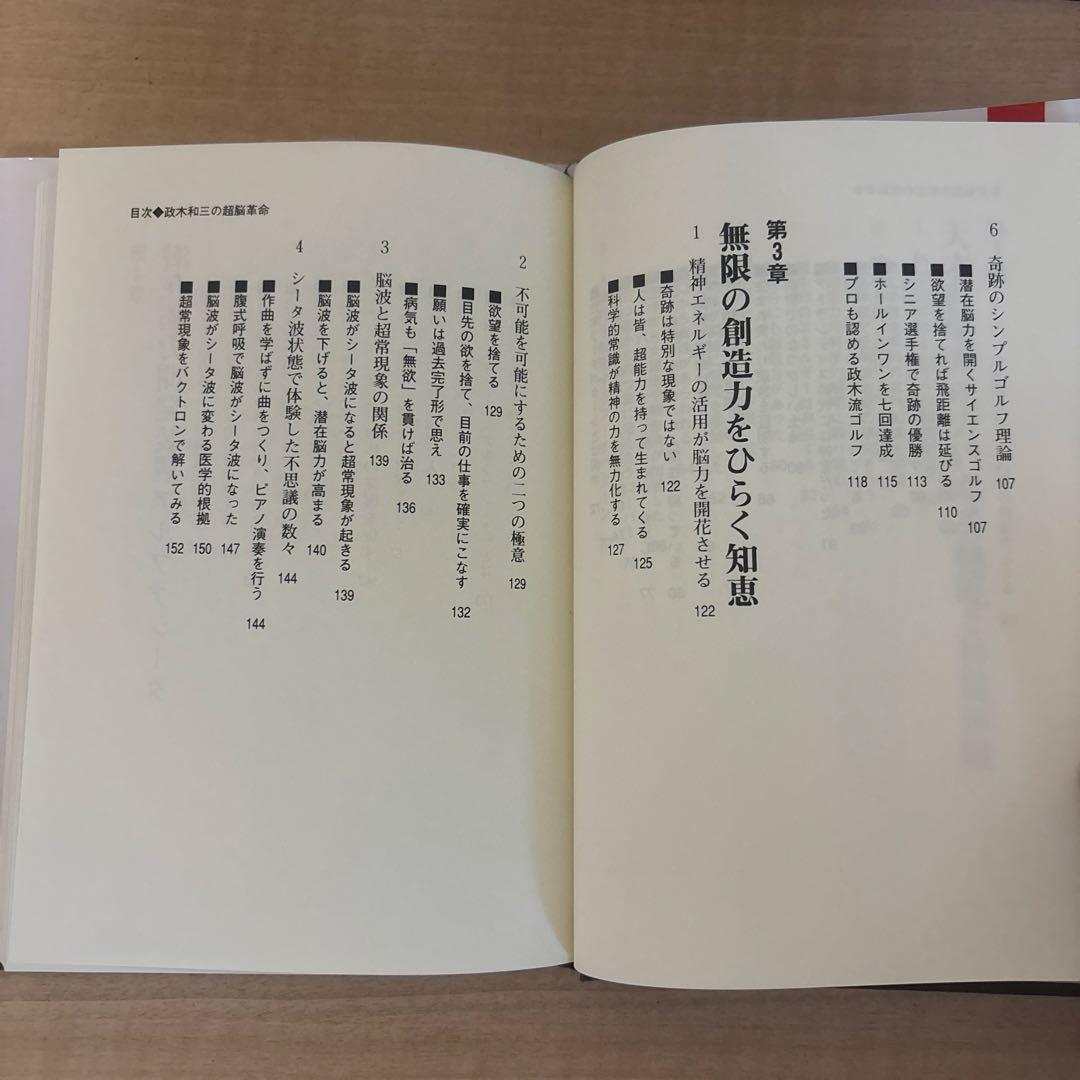 6 奇跡のシンプルゴルフ理論 107
■潜在脳力を開くサイエンスゴルフ 107
■欲望を捨てれば飛距離は延びる 110
■シニア選手権で奇跡の優勝 113
■ホールインワンを七回達成 115
■プロも認める政木流ゴルフ 118
第3章
無限の創造力をひらく知恵
1 精神エネルギーの活用が脳力を開花させる 122
■奇跡は特別な現象ではない 122
■人は皆、超能力を持って生まれてくる 125
■科学的常識が精神の力を無力化する 127
2 不可能を可能にするための二つの極意 129
■欲望を捨てる 129
■目先の欲を捨て、目前の仕事を確実にこなす 132
■願いは過去完了形で思え 133
■病気も「無欲」を貫けば治る 136
3 脳波と超常現象の関係 139
■脳波がシータ波になると超常現象が起きる 139
■脳波を下げると、潜在脳力が高まる 140
4 シータ波状態で体験した不思議の数々 144
■作曲を学ばずに曲をつくり、ピアノ演奏を行う 144
■腹式呼吸で脳波がシータ波になった 147
■脳波がシータ波に変わる医学的根拠 150
■超常現象をバクトロンで解いてみる 152
目次◆政木和三の超脳革命